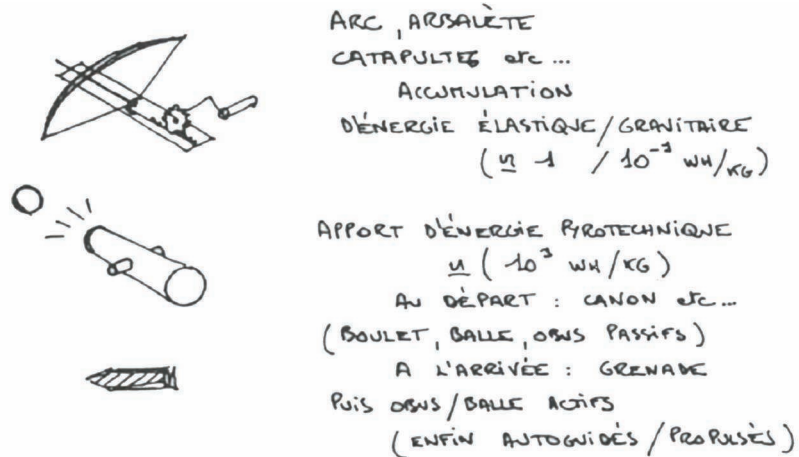 ARC, ARBALÈTE
CATAPULTES etc...
ACCUMULATION
D'ÉNERGIE ÉLASTIQUE/GRAVITAIRE
(≃ 1 / 10⁻³ WH/KG)
APPORT D'ÉNERGIE PYROTECHNIQUE
≃ (10³ WH/KG)
AU DÉPART : CANON etc...
(BOULET, BALLE, OBUS PASSIFS)
A L'ARRIVÉE : GRENADE
PUIS OBUS/BALLE ACTIFS
(ENFIN AUTOGUIDÉS/PROPULSÉS)